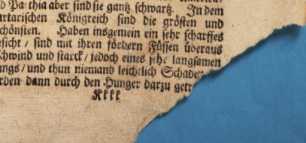 d Pa thia aber sind sie gantz schwartz. In dem
rtarischen Königreich sind die grösten und
chönsten. Haben insgemein ein sehr scharffes
esicht / sind mit ihren fördern Füssen überaus
chwind und starck / jedoch eines sehr langsamen
angs / und thun niemand leichtlich Schade
erden dann durch den Hunger darzu getr
Kkkk